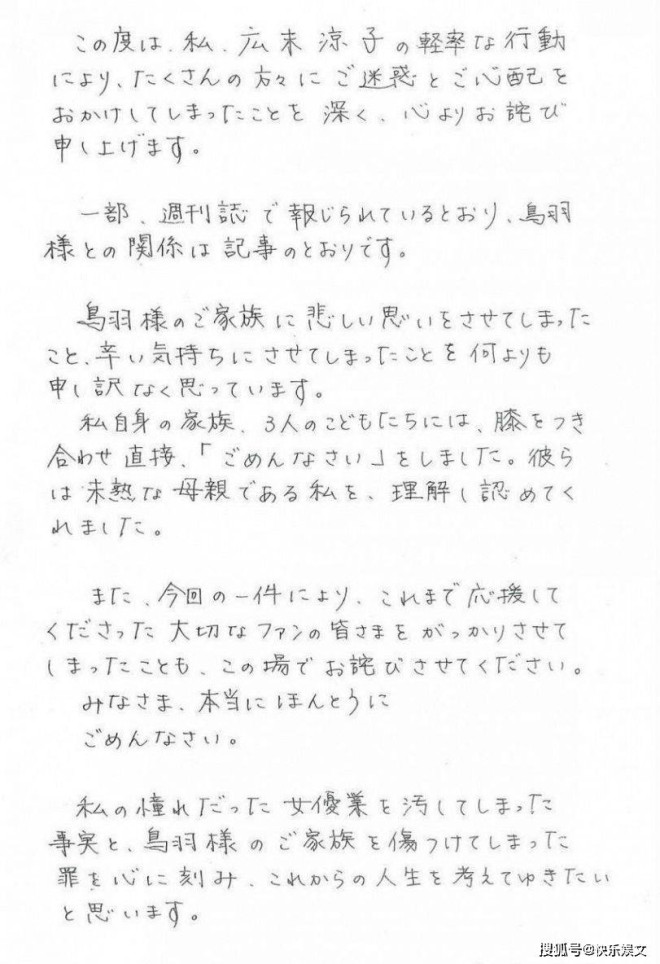 この度は、私、広末涼子の軽率な行動
により、たくさんの方々にご迷惑とご心配を
おかけしてしまったことを深く、心よりお詫び
申し上げます。
一部、週刊誌で報じられているとおり、鳥羽
様との関係は記事のとおりです。
鳥羽様のご家族に悲しい思いをさせてしまった
こと、辛い気持ちにさせてしまったことを何よりも
申し訳なく思っています。
私自身の家族、3人のこどもたちには、膝をつき
合わせ直接、「ごめんなさい」をしました。彼ら
は未熟な母親である私を、理解し認めてく
れました。
また、今回の一件により、これまで応援して
くださった大切なファンの皆さまをがっかりさせて
しまったことも、この場でお詫びさせてください。
みなさま、本当にほんとうに
ごめんなさい。
私の憧れだった女優業を汚してしまった
事実と、鳥羽様のご家族を傷つけてしまった
罪を心に刻み、これからの人生を考えてゆきたい
と思います。
搜狐号@快乐娱文